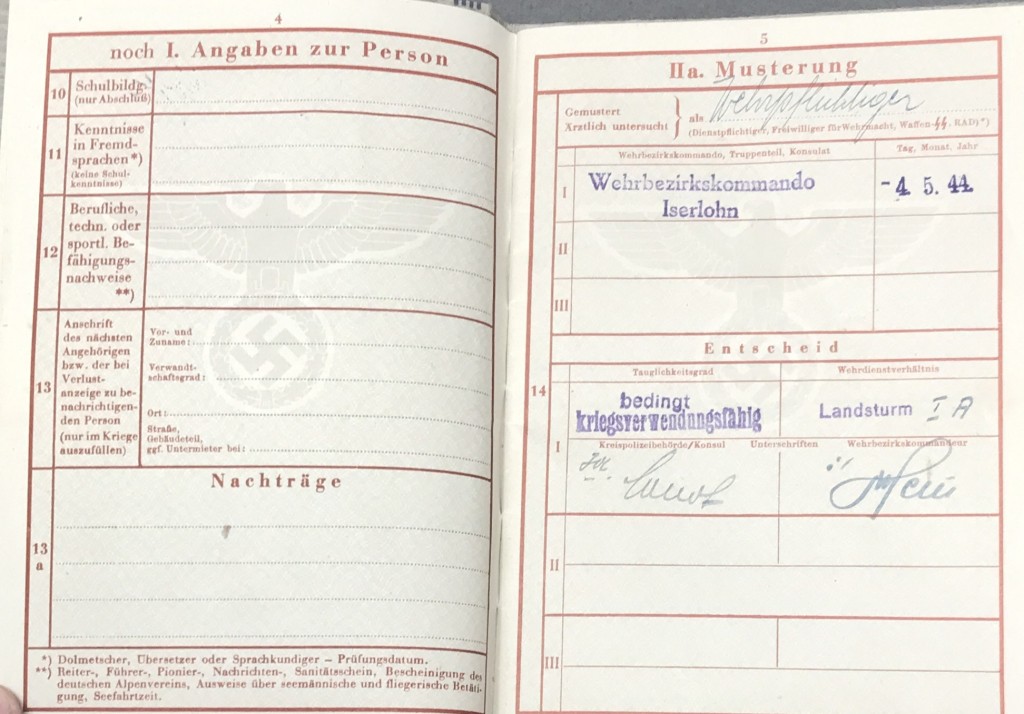 4
noch I. Angaben zur Person
10
Schulbildg.
(nur Abschluß)
11
Kenntnisse
in Fremd-
sprachen *)
(keine Schul-
kenntnisse)
12
Berufliche,
techn. oder
sportl. Be-
fähigungs-
nachweise
**)
13
Anschrift
des nächsten
Angehörigen
bzw. der bei
Verlust-
anzeige zu be-
nachrichtigen-
den Person
(nur im Kriege
auszufüllen)
Vor- und
Zuname:
Verwandt-
schaftsgrad:
Ort:
Straße,
Gebäudeteil,
ggf. Untermieter bei:
13
a
Nachträge
*) Dolmetscher, Übersetzer oder Sprachkundiger – Prüfungsdatum.
**) Reiter-, Führer-, Pionier-, Nachrichten-, Sanitätsschein, Bescheinigung des
deutschen Alpenvereins, Ausweise über seemännische und fliegerische Betäti-
gung, Seefahrtzeit.
5
IIa. Musterung
Gemustert
Ärztlich untersucht } als Wehrpflichtiger
(Dienstpflichtiger, Freiwilliger für Wehrmacht, Waffen-SS, RAD) *)
Wehrbezirkskommando, Truppenteil, Konsulat Tag, Monat, Jahr
I Wehrbezirkskommando - 4. 5. 44
Iserlohn
II
III
Entscheid
14
Tauglichkeitsgrad Wehrdienstverhältnis
bedingt
kriegsverwendungsfähig Landsturm I A
I
Kreispolizeibehörde/Konsul Unterschriften Wehrbezirkskommandeur
II
III